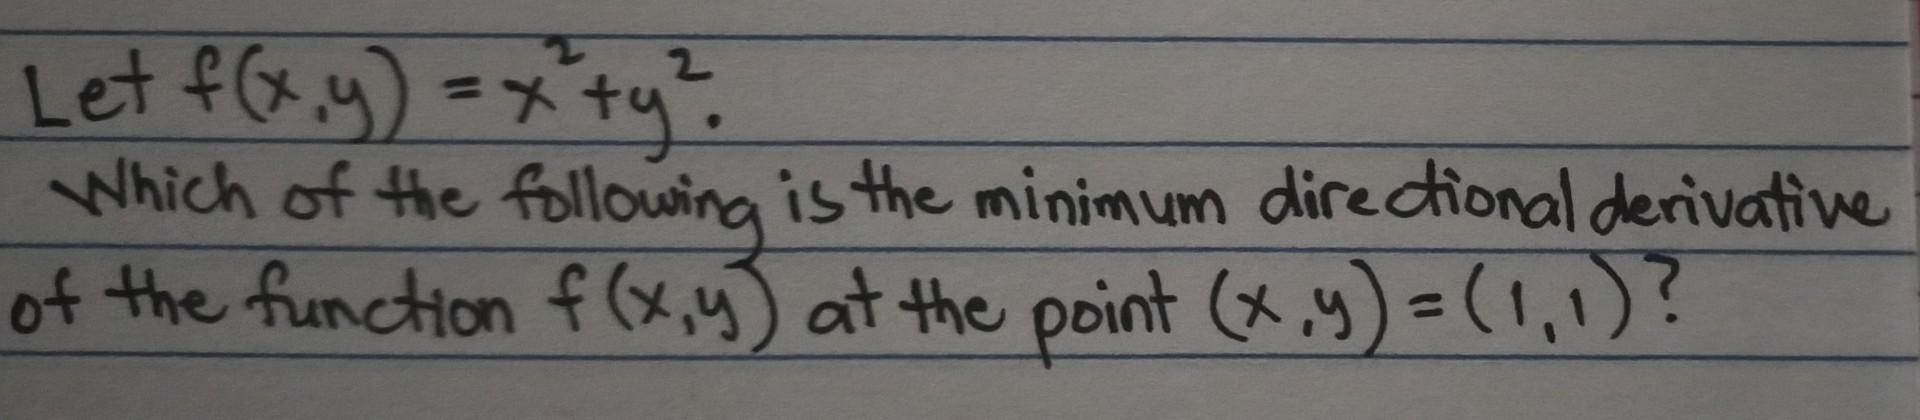 Let f(x,y) = x²+y².
Which of the following is the minimum directional derivative
of the function f(x,y) at the point (x,y) = (1,1)?